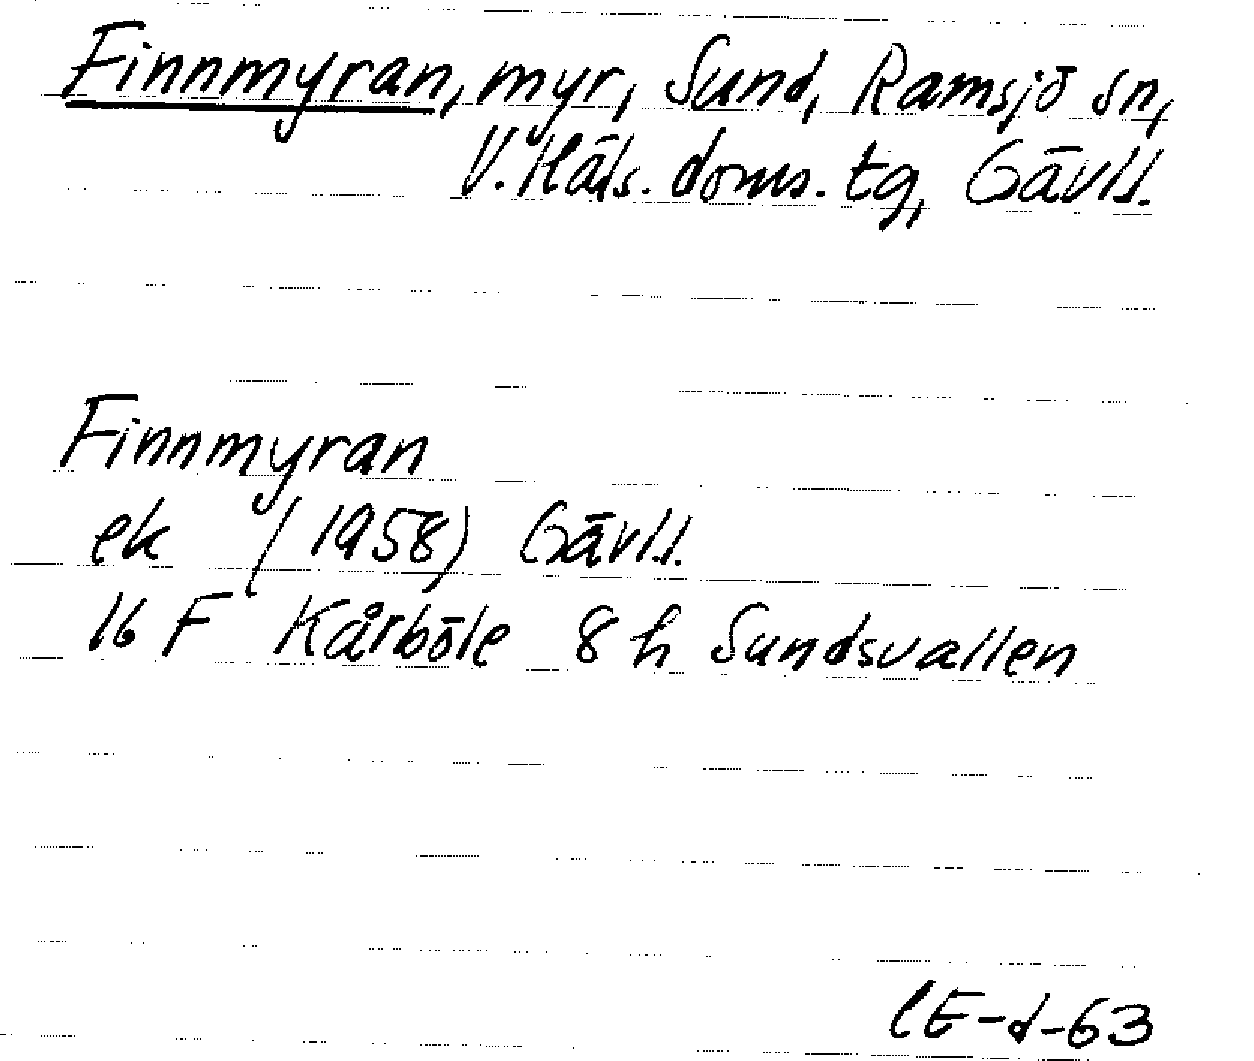 Finnmyran, myr, Sund, Ramsjö sn,
V. Häls. doms. tg, Gävll.
Finnmyran
ek (1958) Gävll.
16 F Kårböle 8 h Sundsvallen
CE-d-63